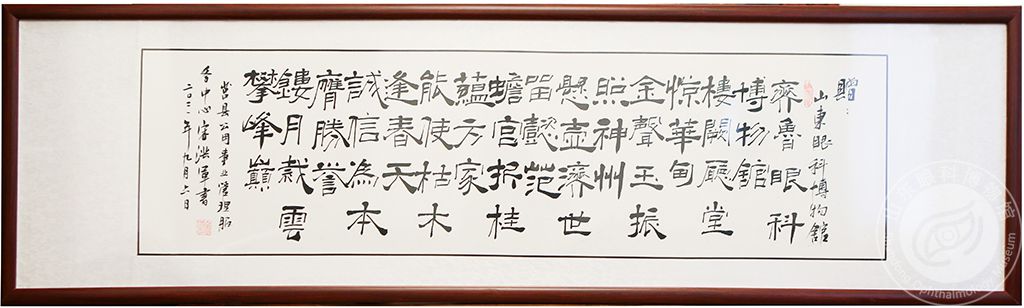 贈:
山東眼科博物館
齊魯眼科
博物館
樓闕廳堂
惊華甸
金聲玉振
照神州
懸壺濟世
留懿范
蟾宫折桂
蘊方家
能使枯木
逢春天
誠信為本
膺勝誉
鏤月裁雲
攀峰巔
莒县公用事业管理服
务中心 洪军書
二〇二一年九月六日
Ophthalmology Museum